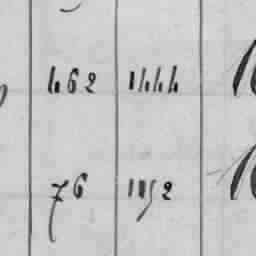 462 1444
76 1152